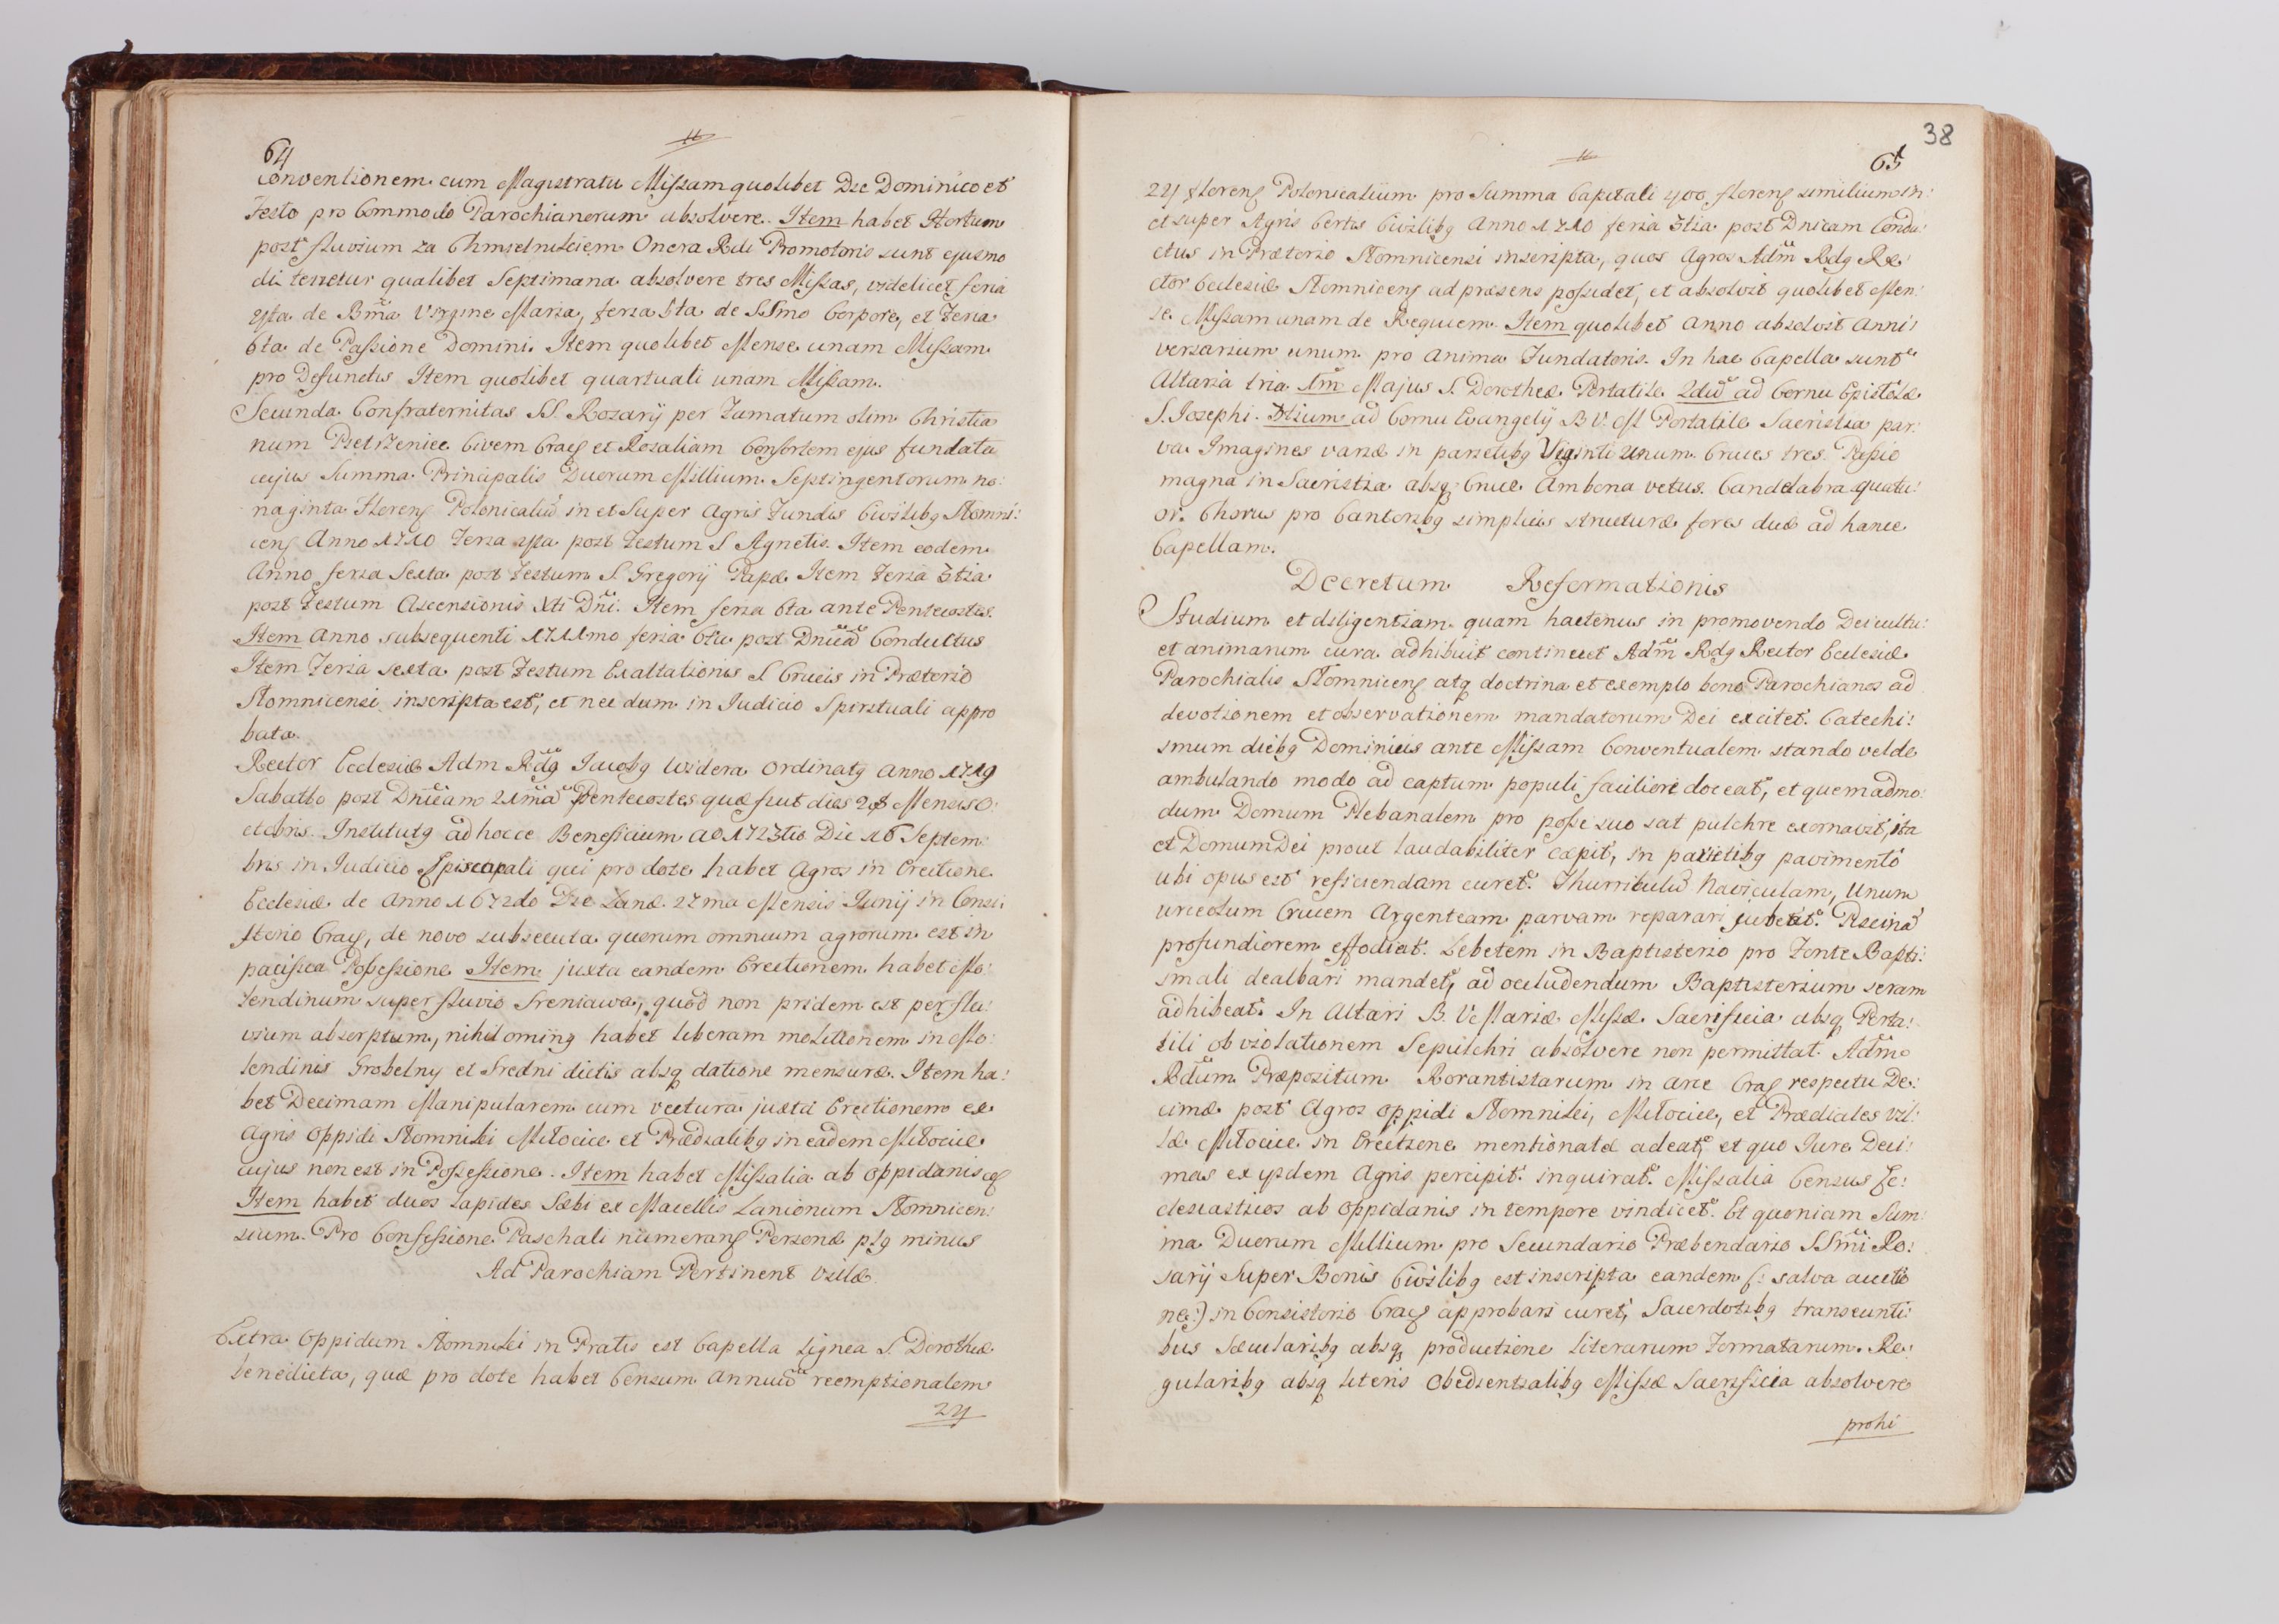 64
Conventionem cum Magistratu Missam quolibet Die Dominico et
Festo pro Commodo Parochianorum absolvere. Item habet Hortum
post fluvium za Chmielnikiem Onera Rdi Promotoris sunt ejusmo
di tenetur qualibet Septimana absolvere tres Missas, videlicet feria
4ta de Bma Virgine Maria, feria 5ta de SSmo Corpore, et Feria
6ta de Passione Domini. Item quolibet Mense unam Missam
pro Defunctis Item quolibet quartuali unam Missam.
Secunda Confraternitas SS. Rozarij per Famatum olim Christia
num Pietrzeniec Civem Crac et Rosaliam Consortem ejus fundata
cujus Summa Principalis Duorum Millium Septingentorum no:
naginta Floren Polonicaliu in et Super Agris Fundis Civilibq Slomni:
cen Anno 1710 Feria 4ta post Festum S Agnetis. Item eodem
Anno feria Sexta post Festum S. Gregorij Papæ Item Feria 3tia
post Festum Ascensionis Xti Dni. Item feria 6ta ante Pentecostes.
Item Anno subsequenti 1711mo feria 6ta post Dnicã Conductus
Item Feria sexta post Festum Exaltationis S Crucis in Prætorio
Slomnicensi inscripta est, et nec dum in Iudicio Spirituali appro
bata.
Rector Ecclesiæ Adm Rdq Iacobq Widera Ordinatq Anno 1719
Sabatto post Dnicam 21mã Pentecostes quæ fuit dies 28 Mensis O:
ctobris. Institutq ad hocce Beneficium Ao 1723tio Die 16 Septem
bris in Iudicio Episcopali qui pro dote habet Agros in Erectione
Ecclesiæ de Anno 1672do Die Lunæ 27ma Mensis Junij in Consi:
storio Crac, de novo subsecuta quorum omnium agrorum est in
pacifica Possessione Item juxta eandem Erectionem habet Mo:
lendinum super fluvio Sreniawa, quod non pridem est per flu:
vium absorptum, nihilominq habet liberam molitionem in Mo:
lendinis Grobelny et Sredni dictis absq datione mensuræ. Item ha:
bet Decimam Manipularem cum vectura juxta Erectionem ex
Agris Oppidi Slomniki Miłocice et Prædialibq in eadem Miłocice
cujus non est in Possessione. Item habet Missalia ab Oppidanis
Item habet duos lapides Sæbi ex Macellis Lanionum Slomnicen:
sium. Pro Confessione Paschali numeran Personæ plq minus
Ad Parochiam Pertinent Villæ
Extra Oppidum Slomniki in Pratis est Capella Lignea S. Dorotheæ
benedicta, quæ pro dote habet Censum Annuũ reemptionalem
24
38
65
24 floren Polonicalium pro Summa Capitali 400 floren similium in:
et super Agris Certis Civilibq Anno 1710 feria 3tia post Dnicam Condu:
ctus in Prætorio Slomnicensi inscripta, quos Agros Adm Rdq Re:
ctor Ecclesiæ Slomnicen ad præsens possidet, et absolvit quolibet Men:
se Missam unam de Requiem. Item quolibet Anno absolvit Anni:
versarium unum pro Anima Fundatoris. In hac Capella sunt
Altaria tria 1m Majus S. Dorotheæ Portatile 2dũ ad Cornu Epistolæ
S. Iosephi. 3tium ad Cornu Evangelij B V. M Portatile Sacristia par:
va. Imagines variæ in parietibq Viginti Unum. Cruces tres. Passio
magna in Sacristia absq Cruce Ambona vetus. Candelabra quatu:
or. Chorus pro Cantoribq simplicis structuræ fores duæ ad hance
Capellam.
Decretum Reformationis
Studium et diligentiam quam hactenus in promovendo Dei cultu:
et animarum cura adhibuit continuet Adm Rdq Rector Ecclesiæ
Parochialis Slomnicen atq doctrina et exemplo bono Parochianos ad
devotionem et observationem mandatorum Dei excitet. Catechi:
smum diebq Dominicis ante Missam Conventualem stando vel de
ambulando modo ad captum populi faciliori doceat, et quemadmo:
dum Domum Plebanalem pro posse suo sat pulchre exornavit, ita
et Domum Dei prout laudabiliter cæpit, in parietibq pavimento
ubi opus est reficiendam curet. Thurribulũ Naviculam, Unum
urceolum Crucem Argenteam parvam reparari jubeat. Piscinã
profundiorem effodiat. Lebetem in Baptisterio pro Fonte Bapti:
smali dealbari mandet, ad occludendum Baptisterium seram
adhibeat. In Altari B. V Mariæ Missæ Sacrificia absq Porta:
tili ob violationem Sepulchri absolvere non permittat. Adm
Rdum Præpositum Rorantistarum in Arce Crac respectu De:
cimæ post Agros Oppidi Slomniki, Miłocice, et Prædiales Vil:
læ Miłocice in Erectione mentionatæ adeat, et quo Iure Deci:
mas ex ijsdem Agris percipit inquirat. Missalia Census Ec:
clesiasticos ab Oppidanis in tempore vindicet. Et quoniam Sum:
ma Duorum Millium pro Secundario Præbendario SSmi Ro:
sarij Super Bonis Civilibq est inscripta eandem (: salva auctio
ne:) in Consistorio Crac approbari curet, Sacerdotibq transeunti:
bus Sæcularibq absq productione literarum Formatarum. Re:
gularibq absq literis Obedientialibq Missæ Sacrificia absolvere
prohi